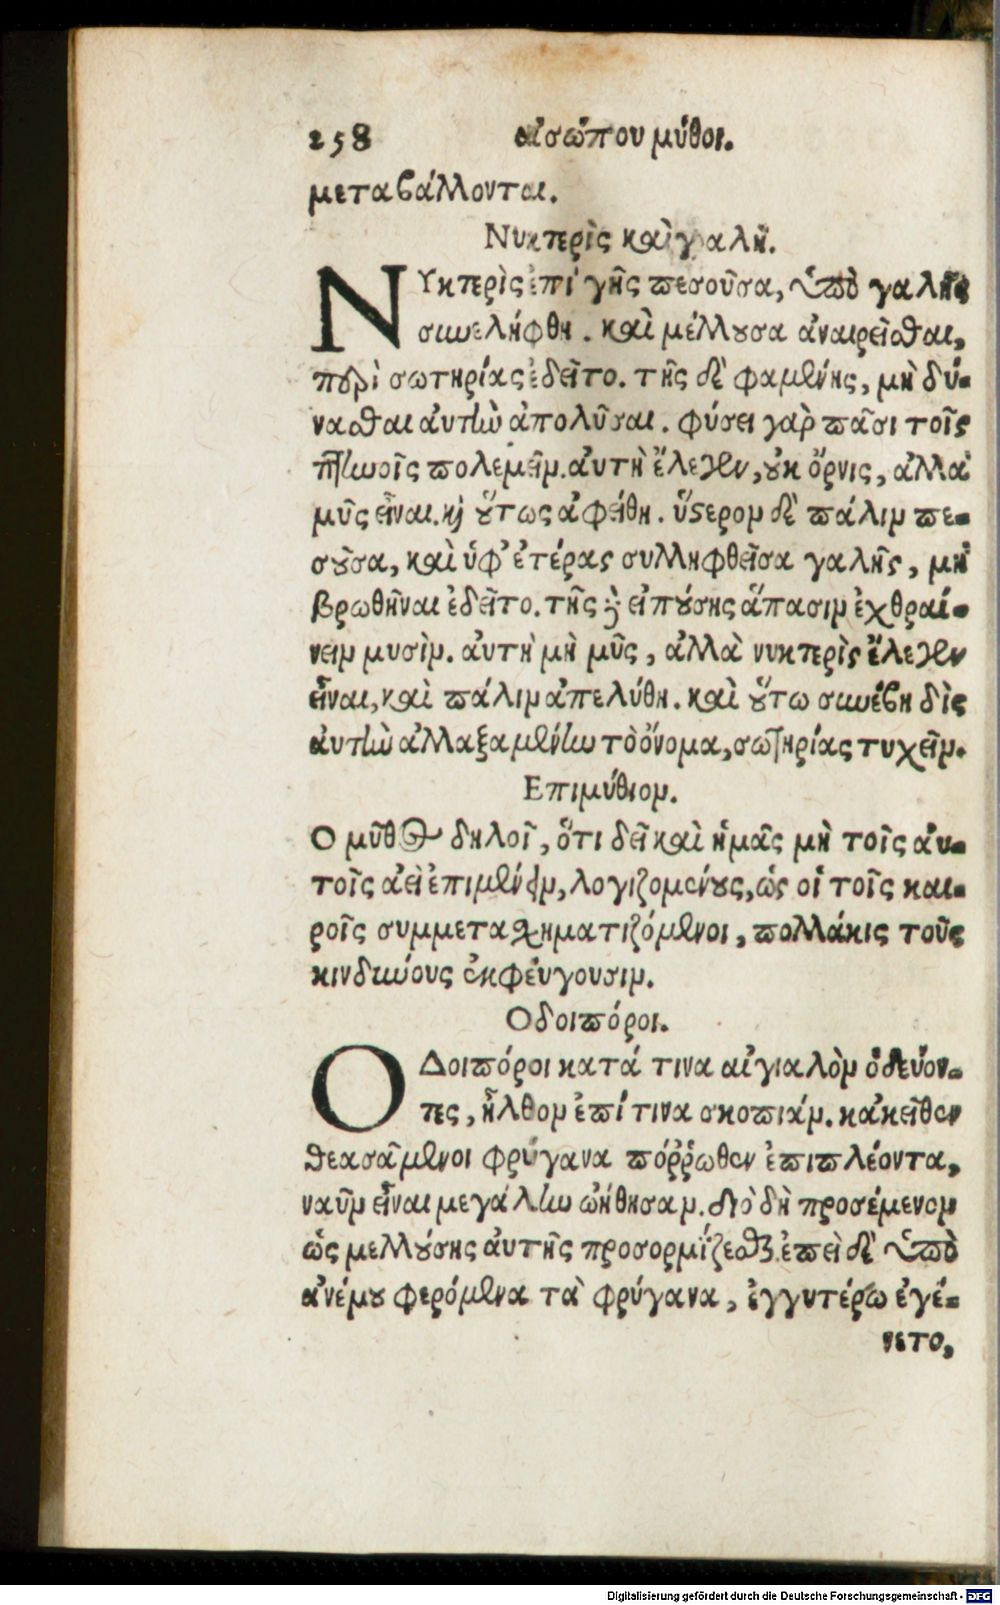 258 αἰσώπου μύθοι.
μεταβάλλονται.
Νυκτερὶς καὶ γαλῆ.
ΝΥκτερὶς ἐπὶ γῆς πεσοῦσα, ὑπὸ γαλῆς
συνελήφθη. καὶ μέλλουσα ἀναιρεῖσθαι,
περὶ σωτηρίας ἐδεῖτο. τῆς δὲ φαμένης, μὴ δύ-
νασθαι αὐτὴν ἀπολῦσαι. φύσει γὰρ πᾶσι τοῖς
πτηνοῖς πολεμεῖν. αὐτὴ ἔλεγεν, οὐκ ὄρνις, ἀλλὰ
μῦς εἶναι. καὶ οὕτως ἀφείθη. ὕστερον δὲ πάλιν πε-
σοῦσα, καὶ ὑφ' ἑτέρας συλληφθεῖσα γαλῆς, μὴ
βρωθῆναι ἐδεῖτο. τῆς δὲ εἰπούσης ἅπασιν ἐχθραί-
νειν μυσὶν. αὐτὴ μὴ μῦς, ἀλλὰ νυκτερὶς ἔλεγεν
εἶναι, καὶ πάλιν ἀπελύθη. καὶ οὕτω συνέβη δὶς
αὐτὴν ἀλλαξαμένην τὸ ὄνομα, σωτηρίας τυχεῖν.
Επιμύθιον.
Ο μῦθος δηλοῖ, ὅτι δεῖ καὶ ἡμᾶς μὴ τοῖς αὐ-
τοῖς ἀεὶ ἐπιμένειν, λογιζομένους, ὡς οἱ τοῖς και-
ροῖς συμμετασχηματιζόμενοι, πολλάκις τοὺς
κινδύνους ἐκφεύγουσιν.
Οδοιπόροι.
ΟΔοιπόροι κατά τινα αἰγιαλὸν ὁδεύον-
τες, ἦλθον ἐπί τινα σκοπιάν. κἀκεῖθεν
θεασάμενοι φρύγανα πόῤῥωθεν ἐπιπλέοντα,
ναῦν εἶναι μεγάλην ᾠήθησαν. διὸ δὴ προσέμενον
ὡς μελλούσης αὐτῆς προσορμίζεσθαι. ἐπεὶ δὲ ὑπὸ
ἀνέμου φερόμενα τὰ φρύγανα, ἐγγυτέρω ἐγέ-
νετο,
Digitalisierung gefördert durch die Deutsche Forschungsgemeinschaft - DFG